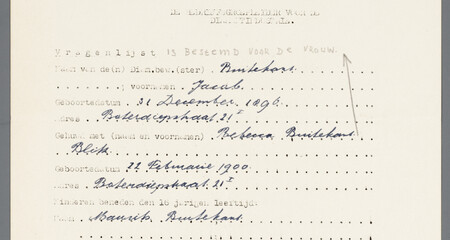 Vragenlijst IS BESTEMD VOOR DE VROUW.
Naam van de(n) Buitekant
; voornamen. Jacob
Geboortedatum. 21 December 1896.
Adres. Boterdiepstraat 21 I
Gehuwd met (naam en voornamen) Rebecca Buitekant
Blik
Geboortedatum. 22 Februarie 1900
Adres. Boterdiepstraat 21 I
Kinderen beneden den 16 jarigen leeftijd:
Naam. Maurits Buitekant